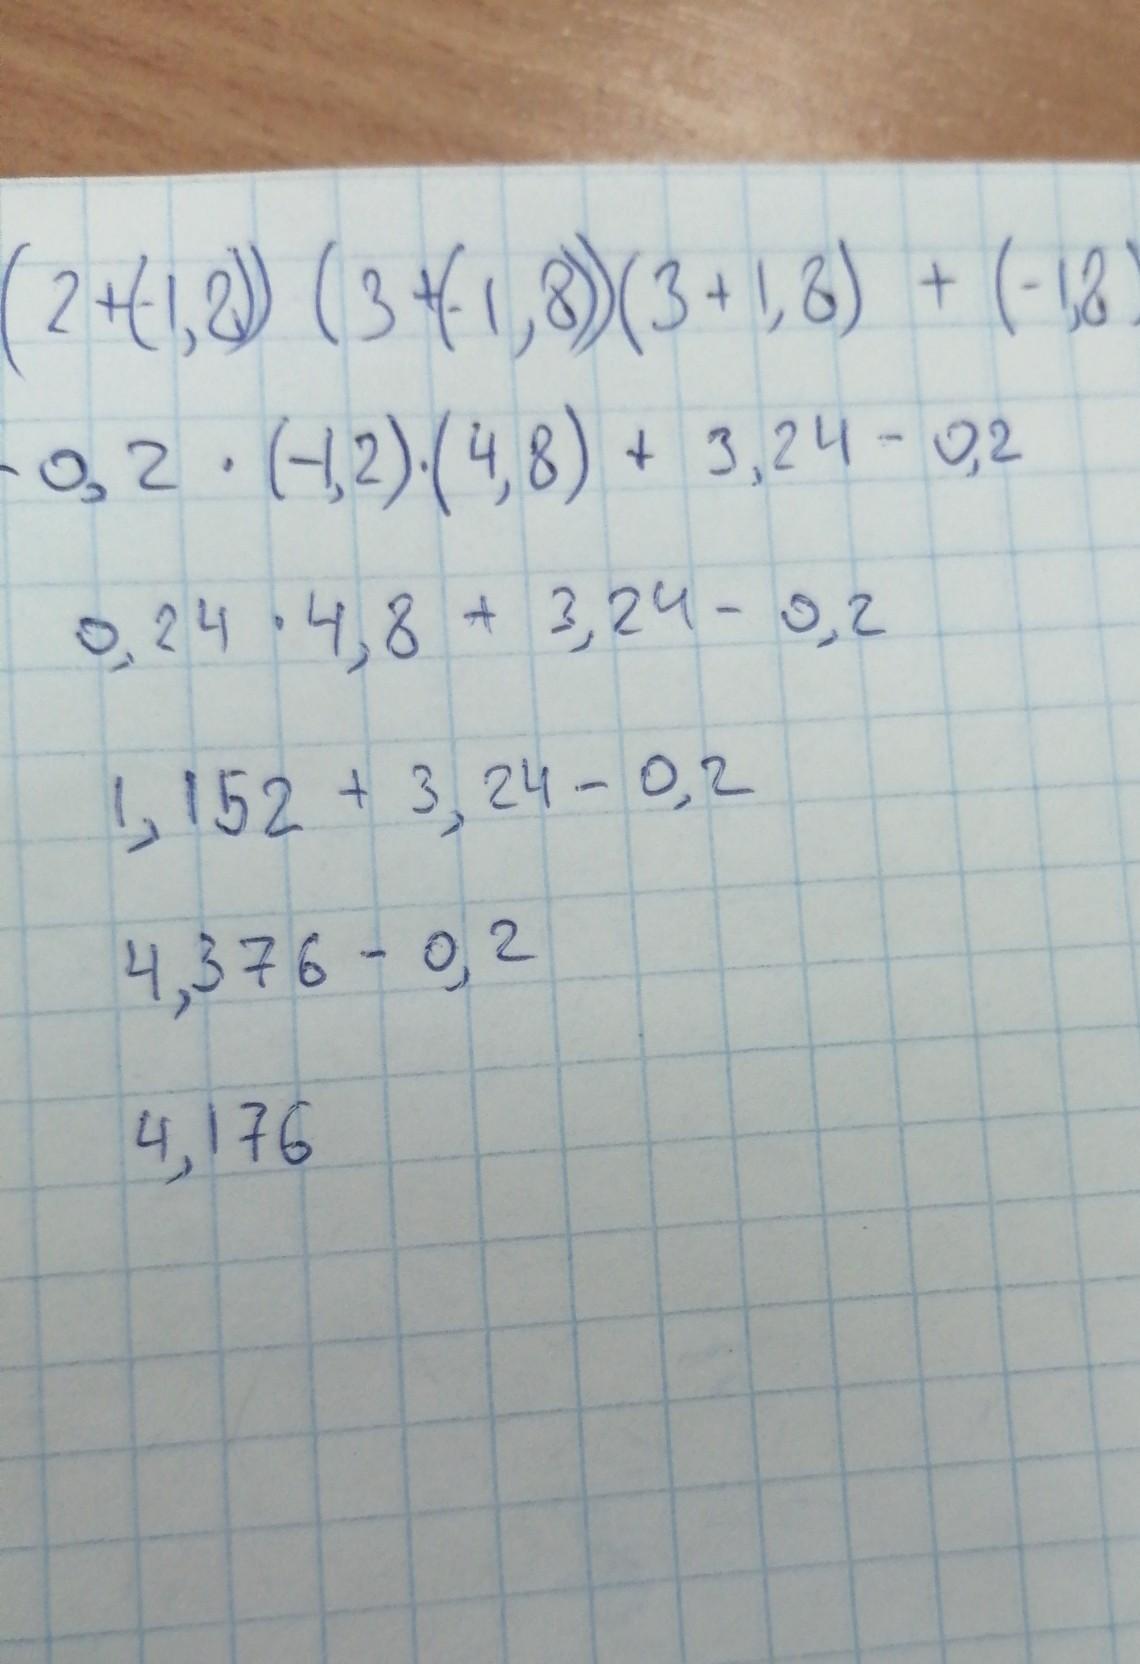 (2+(-1,8)) (3+(-1,8))(3+1,8) + (-1,8)
-0,2 · (-1,2)·(4,8) + 3,24 - 0,2
0,24 · 4,8 + 3,24 - 0,2
1,152 + 3,24 - 0,2
4,376 - 0,2
4,176